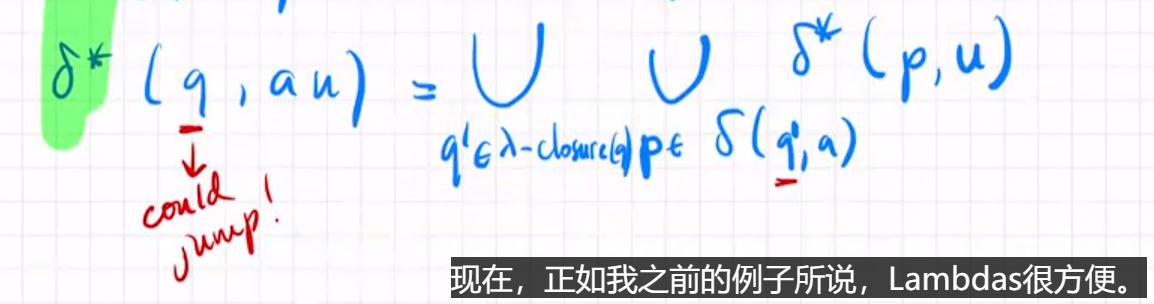 δ* (q, au) = ⋃ ⋃ δ* (p, u)
q' ∈ λ-closure(q) p ∈ δ(q', a)
could
jump!
现在，正如我之前的例子所说，Lambdas很方便。